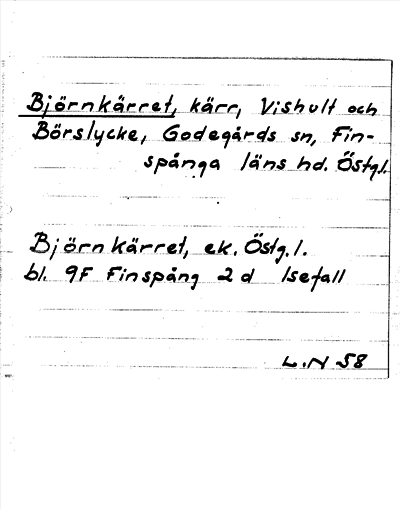 Björnkärret, kärr, Vishult och
Börslycke, Godegårds sn, Fin-
spånga läns hd. Östg.l.
Björnkärret, ek. Östg.l.
bl. 9F Finspång 2 d Isefall
L.N 58